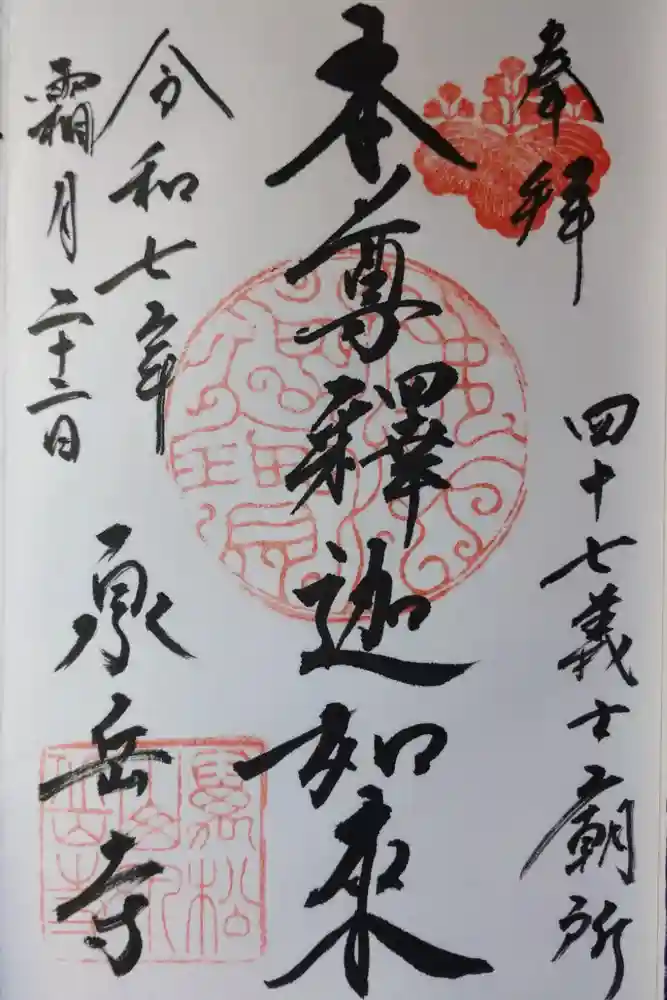 奉拝
四十七義士廟所
本尊釋迦如来
令和七年
霜月二十二日
泉岳寺